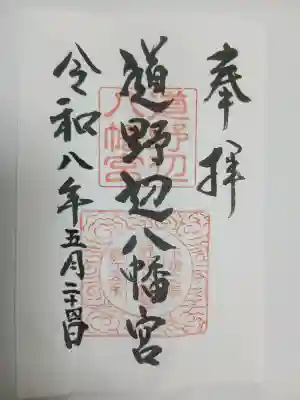 奉拝
道野辺八幡宮
令和八年五月二十四日
道野辺
八幡宮